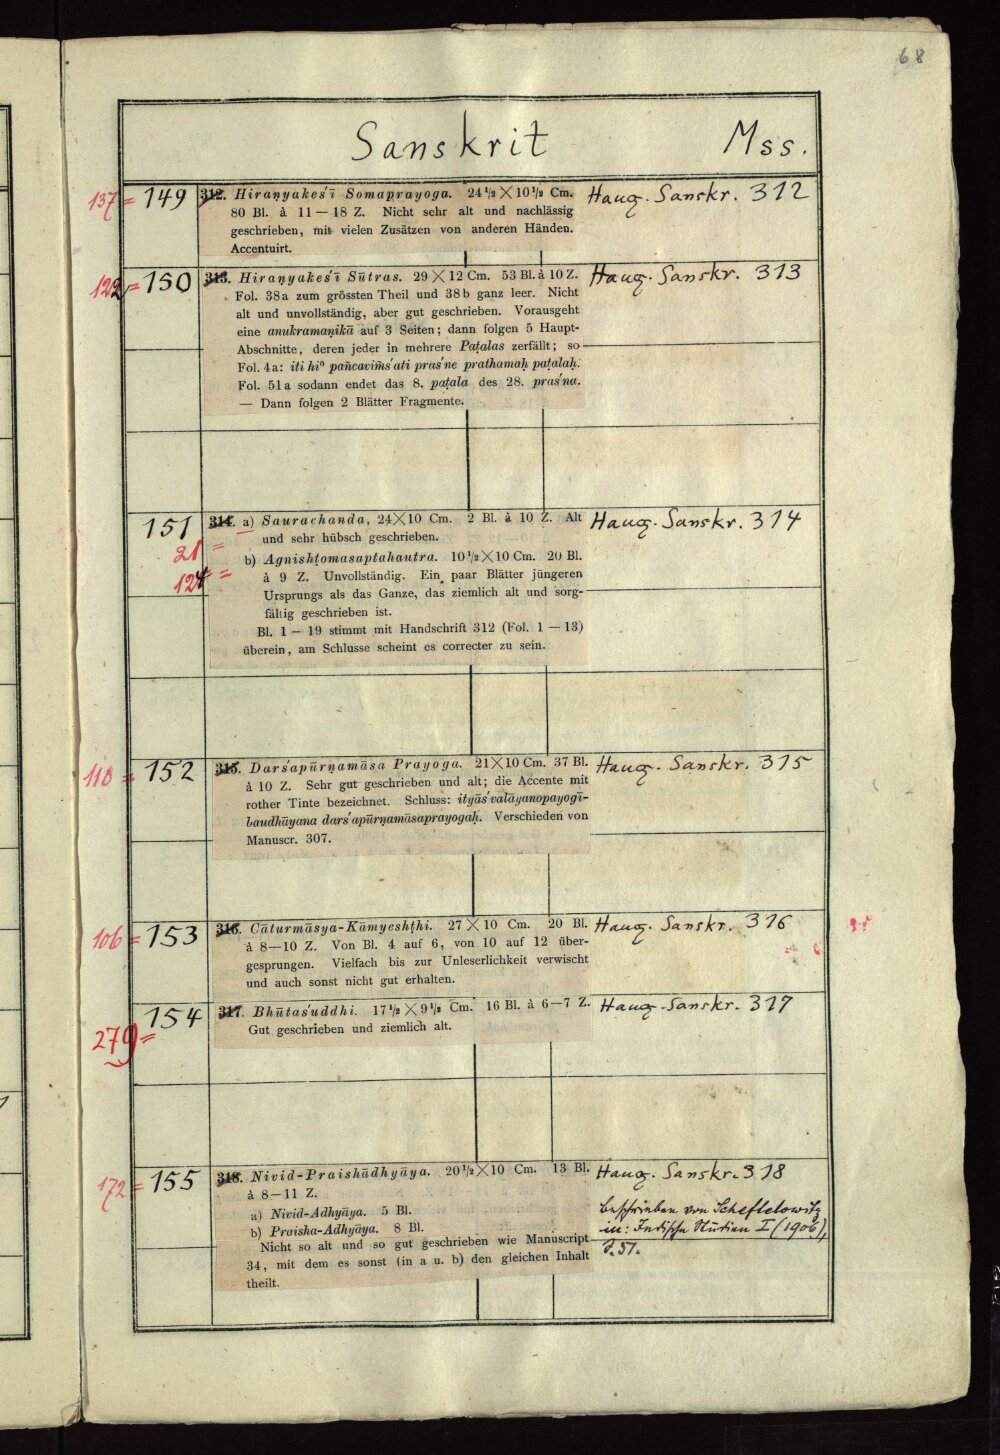 68
Sanskrit Mss.
137 = 149 312. Hiraṇyakes'ī Somaprayoga. 24½ × 10½ Cm. Haug. Sanskr. 312
80 Bl. à 11 — 18 Z. Nicht sehr alt und nachlässig
geschrieben, mit vielen Zusätzen von anderen Händen.
Accentuirt.
122 = 150 313. Hiraṇyakes'ī Sūtras. 29 × 12 Cm. 53 Bl. à 10 Z. Haug. Sanskr. 313
Fol. 38a zum grössten Theil und 38b ganz leer. Nicht
alt und unvollständig, aber gut geschrieben. Vorausgeht
eine anukramaṇikā auf 3 Seiten; dann folgen 5 Haupt-
Abschnitte, deren jeder in mehrere Paṭalas zerfällt; so
Fol. 4a: iti hi⁰ pañcaviṁs'ati pras'ne prathamaḥ paṭalaḥ.
Fol. 51a sodann endet das 8. paṭala des 28. pras'na.
— Dann folgen 2 Blätter Fragmente.
151 314. a) Saurachanda, 24 × 10 Cm. 2 Bl. à 10 Z. Alt Haug. Sanskr. 314
21 = und sehr hübsch geschrieben.
124 = b) Agnishṭomasaptahautra. 10½ × 10 Cm. 20 Bl.
à 9 Z. Unvollständig. Ein paar Blätter jüngeren
Ursprungs als das Ganze, das ziemlich alt und sorg-
fältig geschrieben ist.
Bl. 1 — 19 stimmt mit Handschrift 312 (Fol. 1 — 13)
überein, am Schlusse scheint es correcter zu sein.
110 = 152 315. Dars'apūrṇamāsa Prayoga. 21 × 10 Cm. 37 Bl. Haug. Sanskr. 315
à 10 Z. Sehr gut geschrieben und alt; die Accente mit
rother Tinte bezeichnet. Schluss: ityās'valāyanopayogī-
baudhāyana dars'apūrṇamāsaprayogaḥ. Verschieden von
Manuscr. 307.
106 = 153 316. Cāturmāsya-Kāmyeshṭhi. 27 × 10 Cm. 20 Bl. Haug. Sanskr. 316
à 8—10 Z. Von Bl. 4 auf 6, von 10 auf 12 über-
gesprungen. Vielfach bis zur Unleserlichkeit verwischt
und auch sonst nicht gut erhalten.
279 = 154 317. Bhūtas'uddhi. 17½ × 9½ Cm. 16 Bl. à 6—7 Z. Haug. Sanskr. 317
Gut geschrieben und ziemlich alt.
172 = 155 318. Nivid-Praishādhyāya. 20½ × 10 Cm. 13 Bl. Haug. Sanskr. 318
à 8—11 Z.
a) Nivid-Adhyāya. 5 Bl.
b) Praisha-Adhyāya. 8 Bl.
Nicht so alt und so gut geschrieben wie Manuscript
34, mit dem es sonst (in a u. b) den gleichen Inhalt
theilt.
beschrieben von Scheftelowitz
in: Indische Studien I (1906),
S. 51.